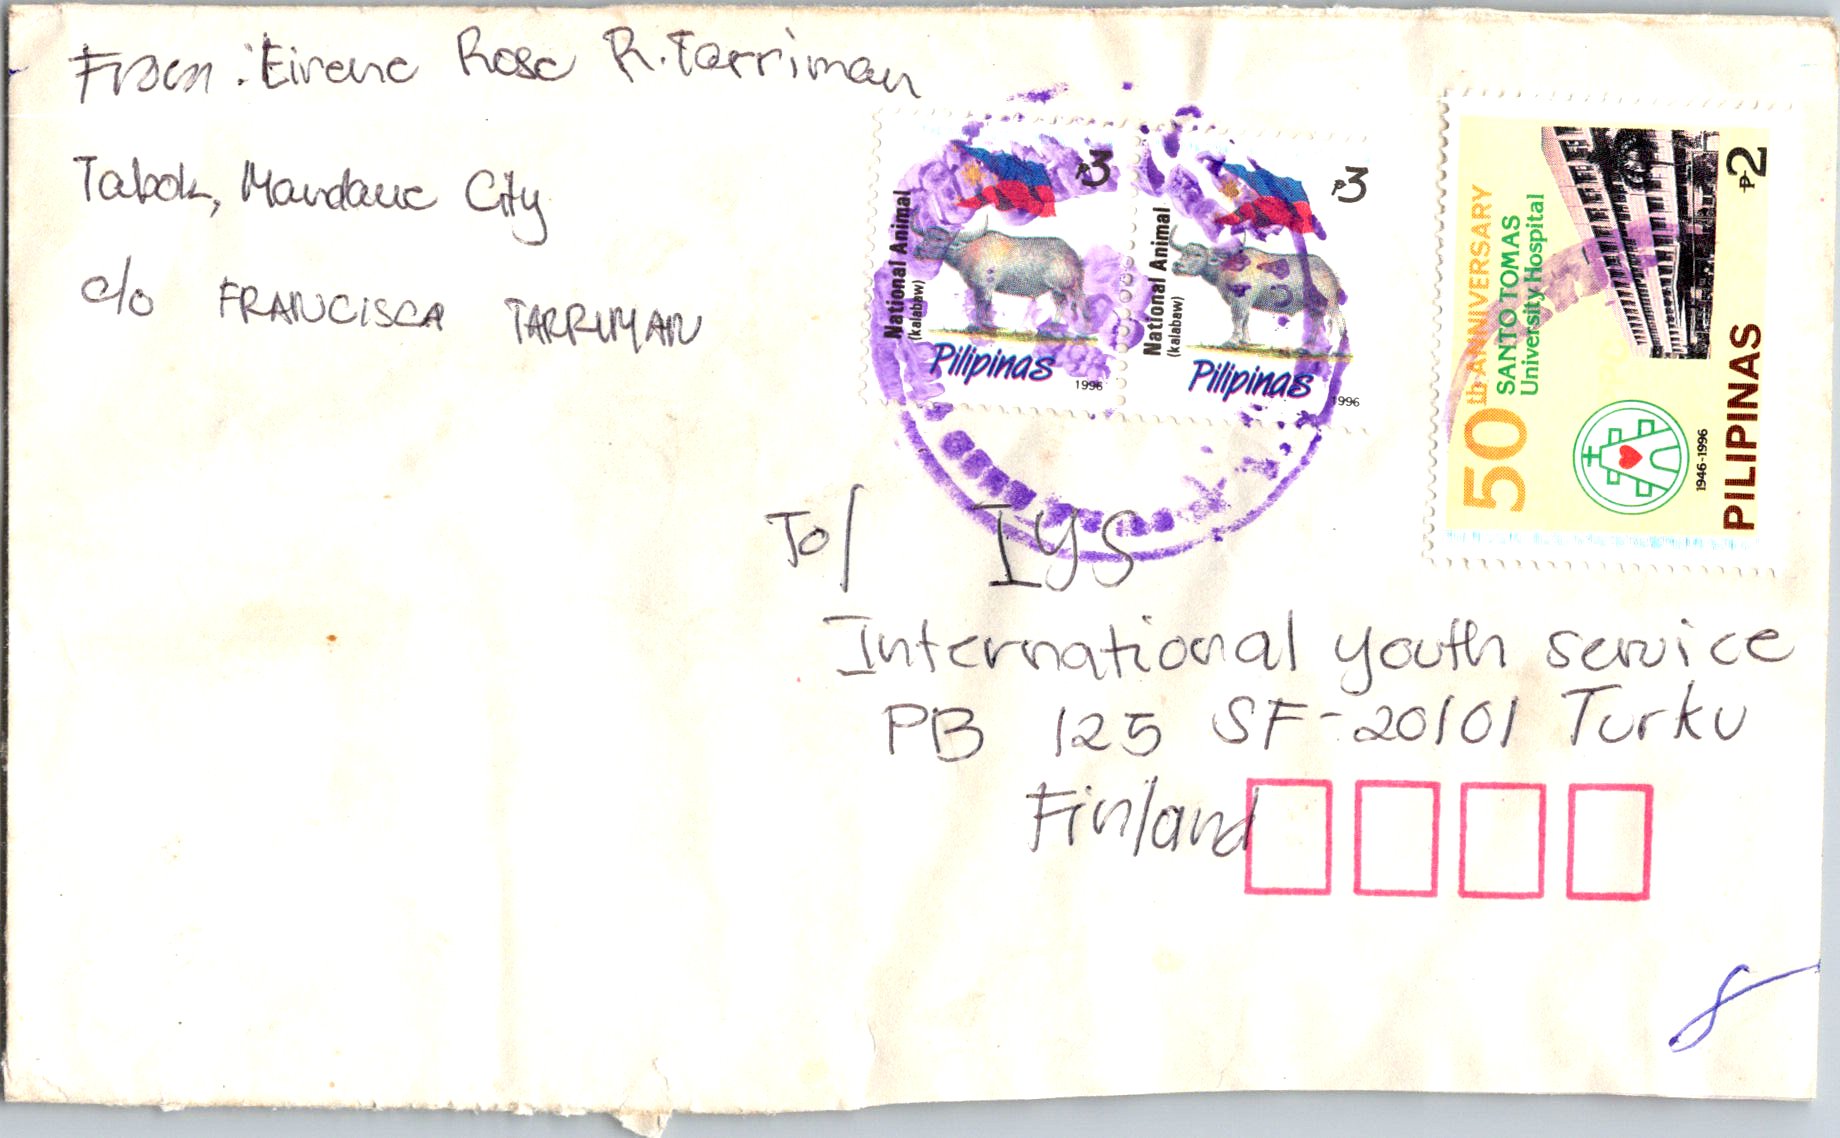 From: Eirene Rose R. Tarriman
Tabok, Mandaue City
c/o FRANCISCA TARRIMAN
₱3
National Animal
(kalabaw)
Pilipinas
1996
₱3
National Animal
(kalabaw)
Pilipinas
1996
50th ANNIVERSARY
SANTO TOMAS
University Hospital
₱2
1946-1996
PILIPINAS
To/ IYS
International youth service
PB 125 SF-20101 Turku
Finland
8